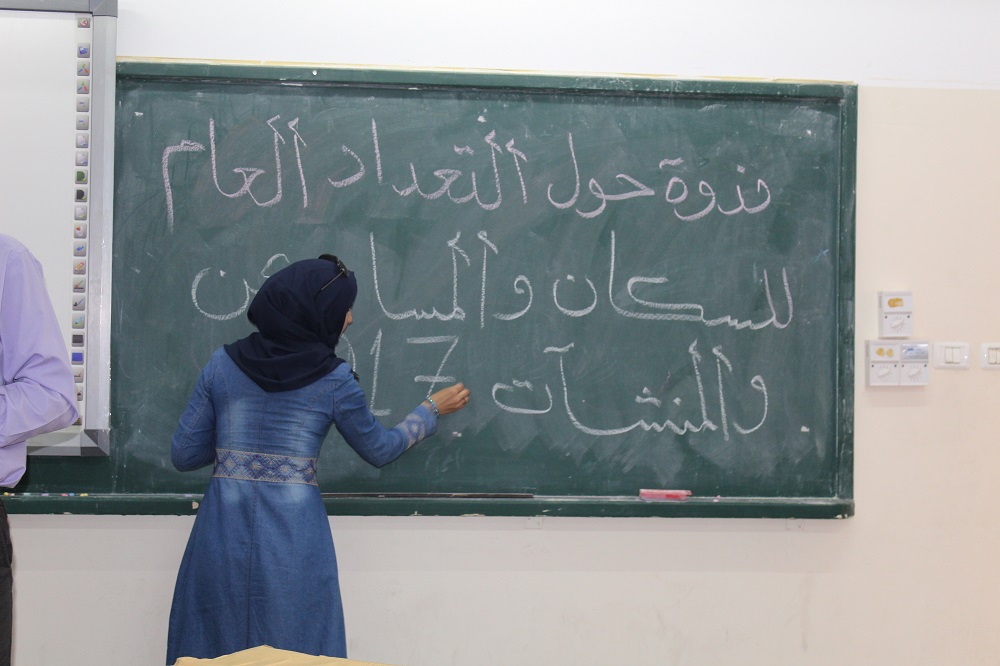 ندوة حول التعداد العام
للسكان والمساكن
والمنشآت 17